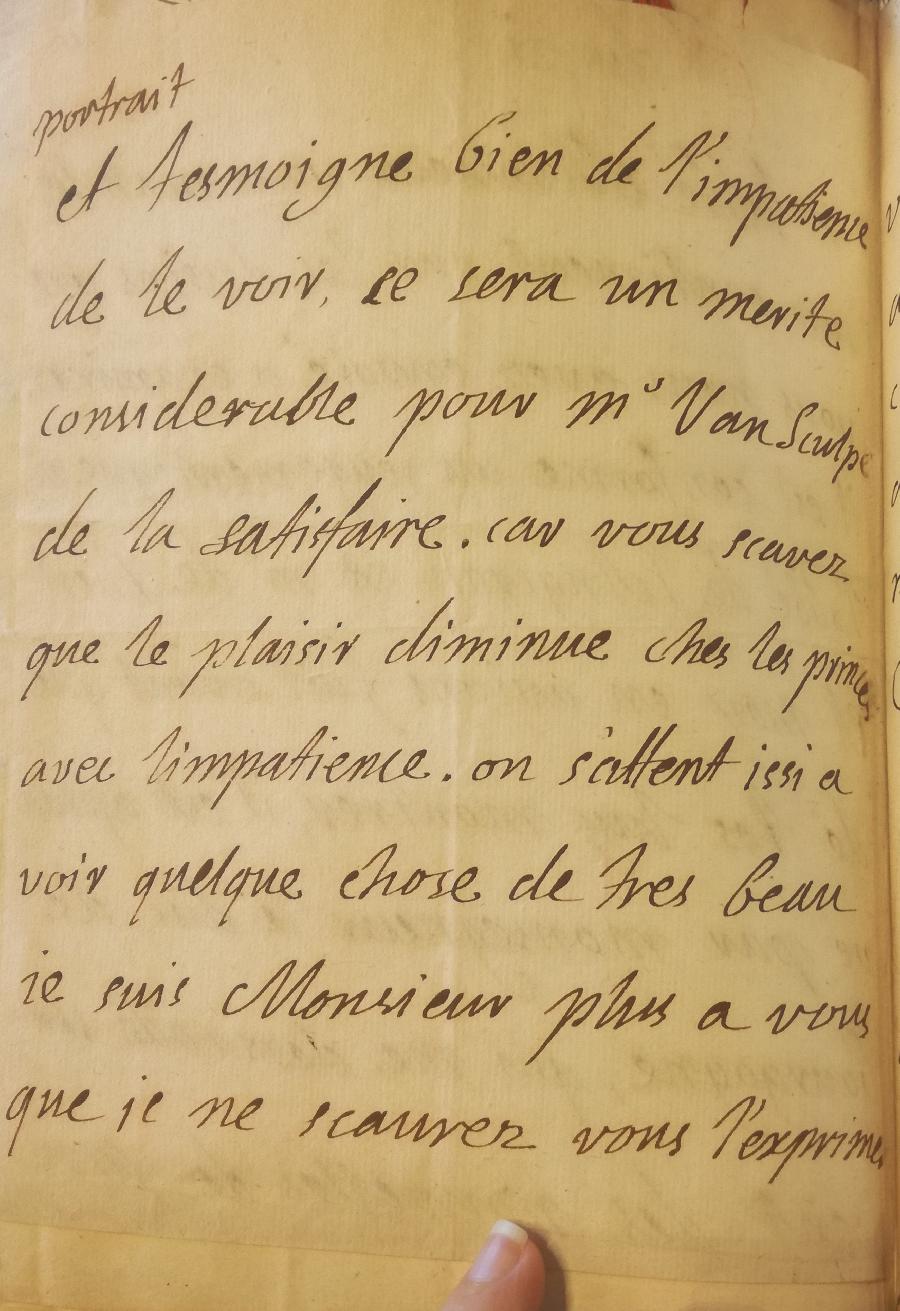 portrait
et tesmoigne bien de l'impatience
de le voir, se sera un merite
considerable pour mr Van Sculpe
de la satisfaire. car vous scavez
que le plaisir diminue ches les princes
avec l'impatience. on s'attent issi a
voir quelque chose de tres beau
ie suis Monsieur plus a vous
que je ne scaurez vous l'exprimer